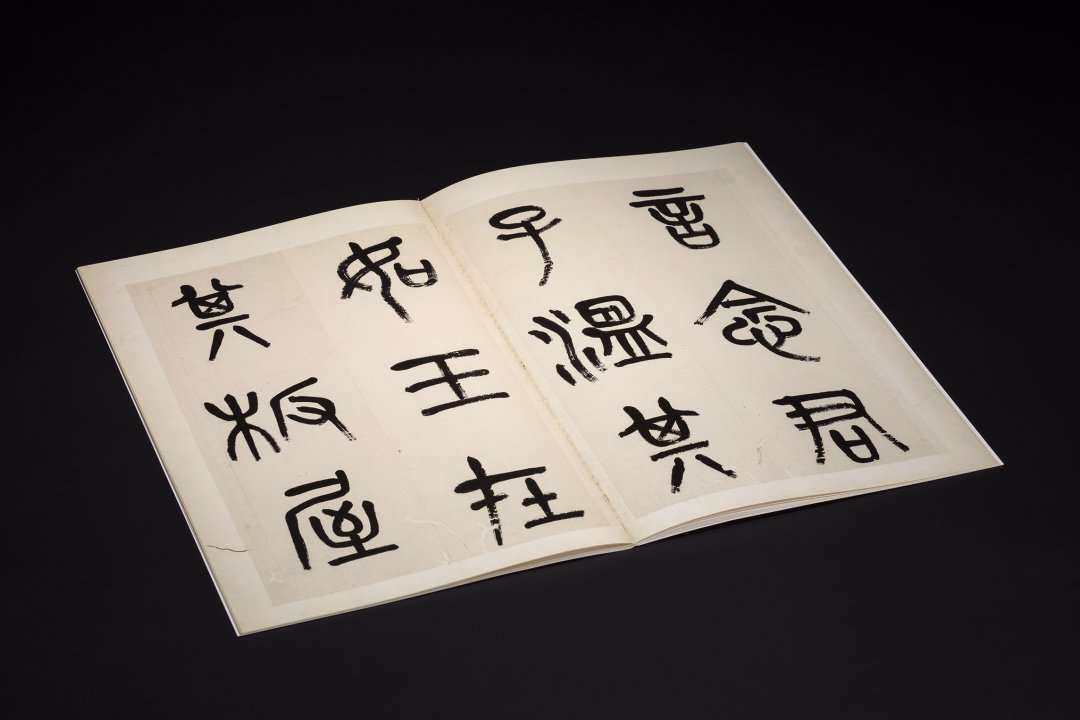 言念君
子溫其
如玉在
其板屋